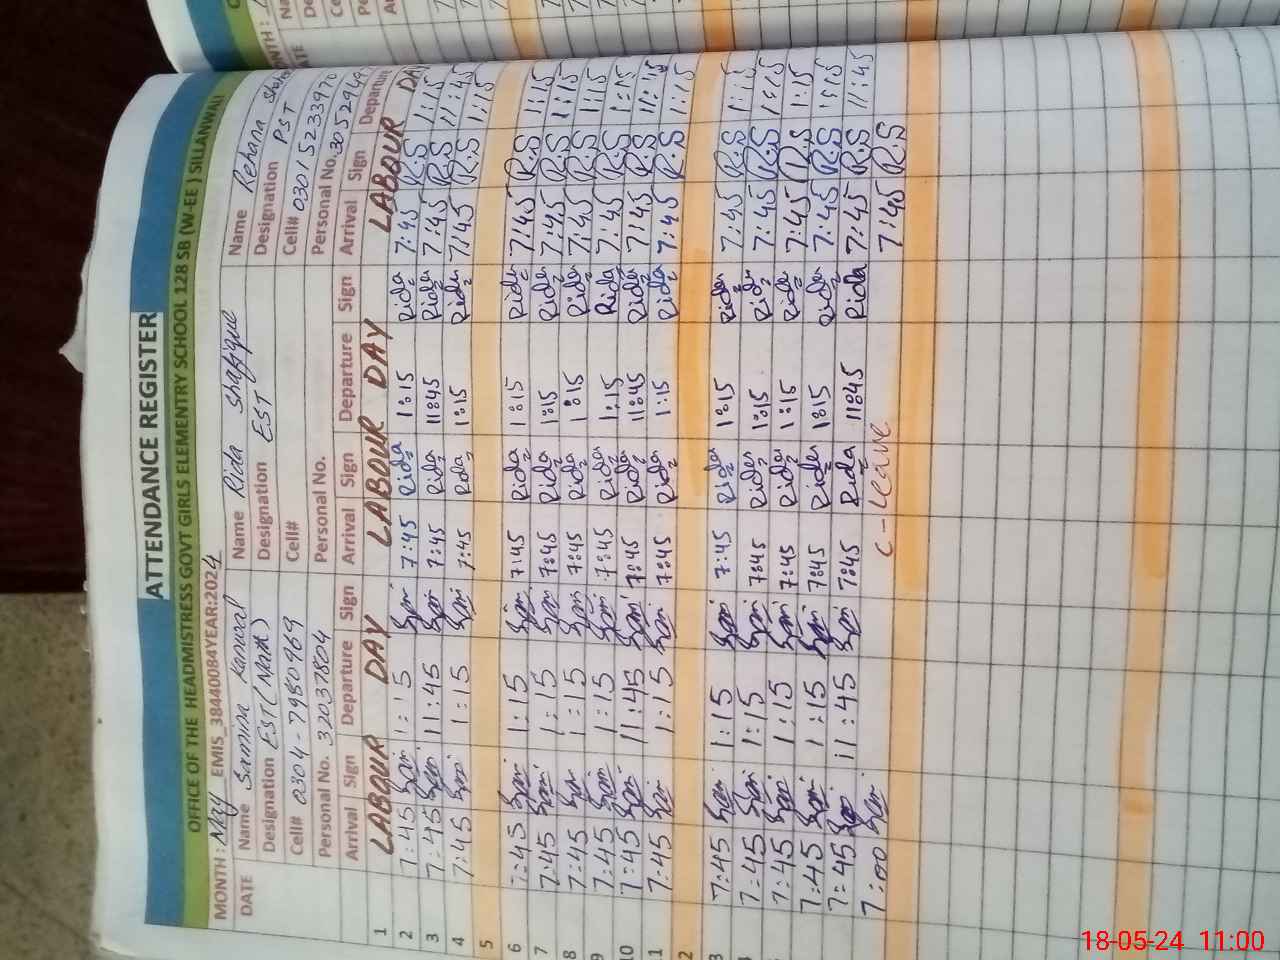 ATTENDANCE REGISTER
OFFICE OF THE HEADMISTRESS GOVT GIRLS ELEMENTRY SCHOOL 128 SB (W-EE) SILLANWALI
MONTH: May EMIS_38440084 YEAR:2024
DATE Name Samina Kanwal Name Rida Shafique Name Rehana
Designation EST (Math) Designation EST Designation PST
Cell# 0304-7980969 Cell# Cell# 0301 5233970
Personal No. 32037804 Personal No. Personal No. 3052949
Arrival Sign Departure Sign Arrival Sign Departure Sign Arrival Sign Departure
1 LABOUR DAY LABOUR DAY LABOUR DAY
2 7:45 Sam 1:15 Sam 7:45 Rida 1:15 Rida 7:45 R.S 1:15
3 7:45 Sam 11:45 Sam 7:45 Rida 11:45 Rida 7:45 R.S 11:45
4 7:45 Sam 1:15 Sam 7:45 Rida 1:15 Rida 7:45 R.S 1:15
5
6 7:45 Sam 1:15 Sam 7:45 Rida 1:15 Rida 7:45 R.S 1:15
7 7:45 Sam 1:15 Sam 7:45 Rida 1:15 Rida 7:45 R.S 1:15
8 7:45 Sam 1:15 Sam 7:45 Rida 1:15 Rida 7:45 R.S 1:15
9 7:45 Sam 1:15 Sam 7:45 Rida 1:15 Rida 7:45 R.S 1:15
10 7:45 Sam 11:45 Sam 7:45 Rida 11:45 Rida 7:45 R.S 11:15
11 7:45 Sam 1:15 Sam 7:45 Rida 1:15 Rida 7:45 R.S 1:15
2
3 7:45 Sam 1:15 Sam 7:45 Rida 1:15 Rida 7:45 R.S 1:15
7:45 Sam 1:15 Sam 7:45 Rida 1:15 Rida 7:45 R.S 1:15
7:45 Sam 1:15 Sam 7:45 Rida 1:15 Rida 7:45 R.S 1:15
7:45 Sam 1:15 Sam 7:45 Rida 1:15 Rida 7:45 R.S 1:15
7:45 Sam 11:45 Sam 7:45 Rida 11:45 Rida 7:45 R.S 11:45
7:00 Sam C-Leave 7:45 R.S
18-05-24 11:00